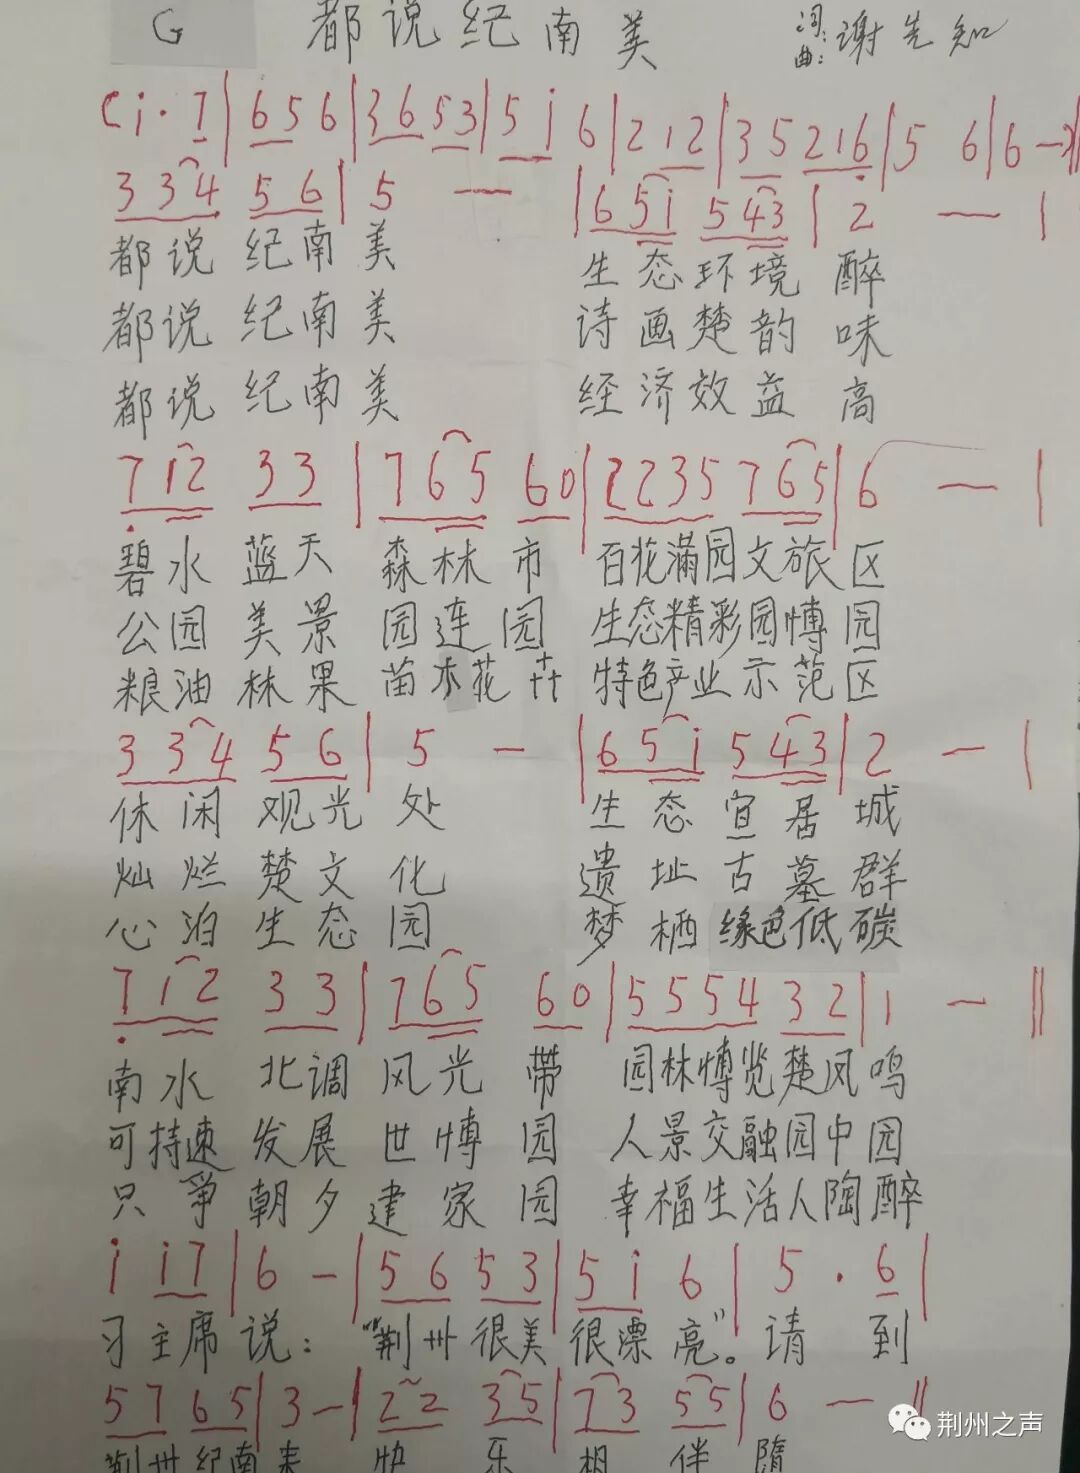 G 都说纪南美 词:曲: 谢先知
( i · 7 | 6 5 6 | 3 6 5 3 | 5 i 6 | 2 1 2 | 3 5 2 1 6 | 5 6 | 6 — ) ||
3 3 4 5 6 | 5 — | 6 5 i 5 4 3 | 2 — |
都说纪南美 生态环境醉
都说纪南美 诗画楚韵味
都说纪南美 经济效益高
7 1 2 3 3 | 7 6 5 6 0 | 2 2 3 5 7 6 5 | 6 — |
碧水蓝天 森林市 百花满园文旅区
公园美景 园连园 生态精彩园博园
粮油林果 苗木花卉 特色产业示范区
3 3 4 5 6 | 5 — | 6 5 i 5 4 3 | 2 — |
休闲观光处 生态宜居城
灿烂楚文化 遗址古墓群
心泊生态园 梦栖绿色低碳
7 1 2 3 3 | 7 6 5 6 0 | 5 5 5 4 3 2 | 1 — ||
南水北调风光带 园林博览楚凤鸣
可持速发展世博园 人景交融园中园
只争朝夕建家园 幸福生活人陶醉
i i 7 | 6 — | 5 6 5 3 | 5 i 6 | 5 · 6 |
习主席说:“荆州很美很漂亮”。请到
5 7 6 5 | 3 — | 2 2 3 5 | 7 3 5 5 | 6 — ||
荆州纪南来 快乐相伴随
荆州之声